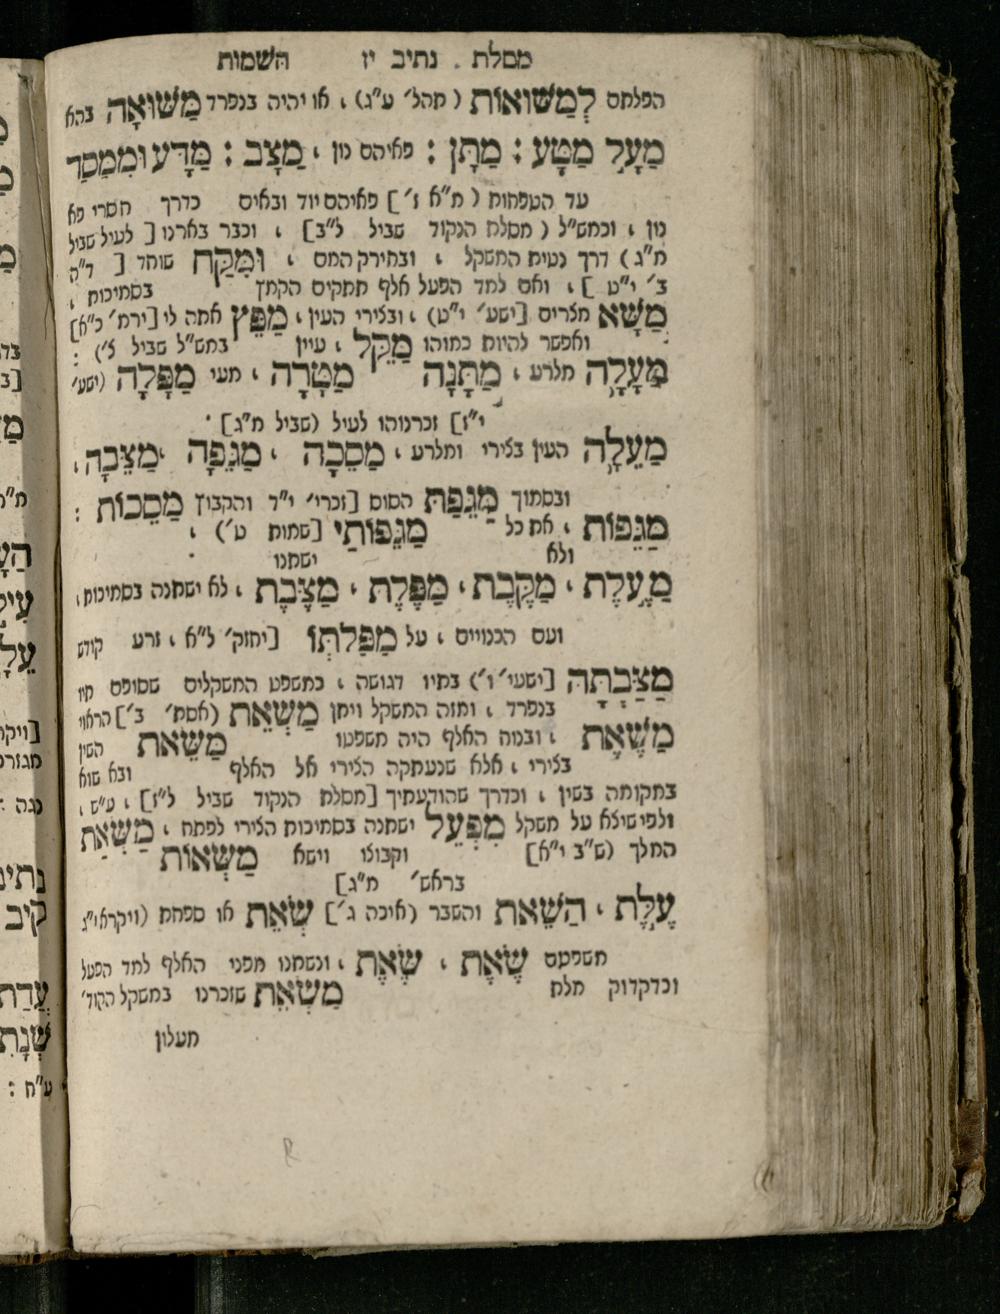 מסלת . נתיב יז השמות
הפלתם לְמַשּׁוּאוֹת ( תהל׳ ע״ג) , או יהיה בנפרד מַשּׁוּאָה בהא
מַעַל מַטָּע : מַתָּן : פאיהם נון , מַצָּב : מַדָּע וּמִמַּסַּד
עד הטפחות ( מ״א ז׳ ] פאיהם יוד ובאים כדרך חסרי פא
נון , וכמש״ל ( מסלת הנקוד שביל ל״ב ] , וכבר בארנו [ לעיל שביל
מ״ג ) דרך נטית המשקל , ובחירק המם , וּמִקַּח שוחד [ ד״ה
ב׳ י״ט ] , ואם למד הפעל אלף תתקים הקמץ בסמיכות ,
מַשָּׂא מצרים [ישע׳ י״ט) , ובצירי העין , מַפֵּץ אתה לי [ירמ׳ כ״א]
ואפשר להיות כמוהו מַקֵּל , עיין במש״ל שביל ל׳) :
מַעָלָה מלרע , מַתָּנָה מַטָּרָה , מעי מַפָּלָה (ישע׳
י״ז] זכרנוהו לעיל (שביל מ״ג] ׳
מַעֵלָה העין בצירי ומלרע , מַסֵּכָה , מַגֵּפָה , מַצֵּבָה ,
ובסמוך מַגֵּפַת הסוס [זכרי׳ י״ד והקבוץ מַסֵּכוֹת :
מַגֵּפוֹת , את כל מַגֵּפוֹתַי [שמות ט׳) ,
ולא ישתנו
מַעֶלֶת , מַקֶּבֶת , מַפֶּלֶת , מַצֶּבֶת , לא ישתנה בסמיכות ,
ועם הכנויים , על מַפַּלְתּוֹ [יחזק׳ ל״א , זרע קודש
מַצַּבְתָּהּ [ישעי׳ ו׳) בתיו דגושה , כמשפט המשקלים שסופם תיו
בנפרד , ומזה המשקל ויתן מַשְׂאֵת (אסת׳ ב׳] הראוי
מַשֶּׂאֶת , ובנוח האלף היה משפטו מַשֵּׂאת השין
בצירי , אלא שנעתקה הצירי אל האלף ובא שוא
במקומה בשין , וכדרך שהודעתיך [מסלת הנקוד שביל ל״ז] , ע״ש ,
ולפי שיצא על משקל מִפְעֵל ישתנה בסמיכות הצירי לפתח , מַשְׂאַת
המלך (ש״ב י״א] וקבוצו וישא מַשְׂאוֹת
בראש׳ מ״ג]
עֶלֶת , הַשֵּׁאת והשבר (איכה ג׳] שְׂאֵת או ספחת (ויקרא י״ג
משפטם שֶׁאֶת , שֶׂאֶת , ונשתנו מפני האלף למד הפעל
וכדקדוק מלת מַשְׂאֵת שזכרנו במשקל הקוד׳
מעלון